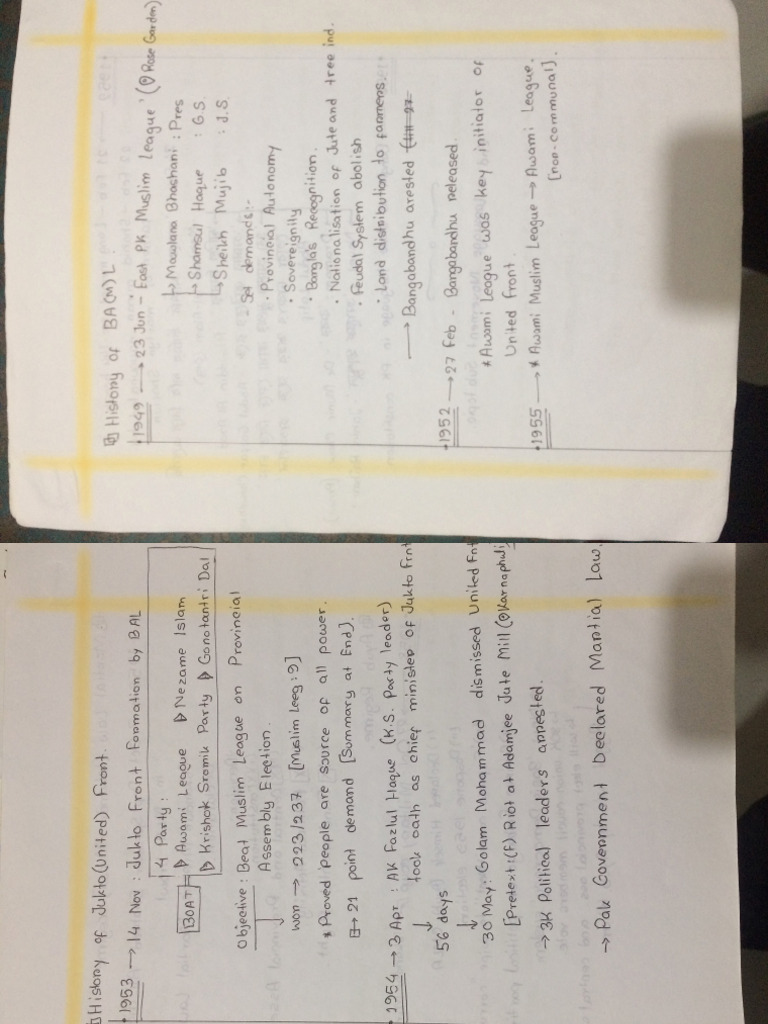 History of BA(M)L.
•1949 → 23 Jun - 'East PK Muslim League' (Rose Garden)
↳ Mawlana Bhashani : Pres
↳ Shamsul Haque : G.S
↳ Sheikh Mujib : J.S.
- Set demands:-
• Provincial Autonomy
• Sovereignity
• Bangla's Recognition.
• Nationalisation of Jute and tree ind.
• Feudal System abolish
• Land distribution to farmers.
→ Bangabandhu arested
•1952 → 27 Feb - Bangabandhu released.
* Awami League was key initiator of
United Front.
•1955 → * Awami Muslim League → Awami League.
[non-communal].
History of Jukto(United) Front.
•1953 → 14 Nov : Jukto Front Formation by BAL
4 Party :
BOAT
▷ Awami League ▷ Nezame Islam
▷ Krishok Sromik Party ▷ Gonotantri Dal
Objective : Beat Muslim League on Provincial
Assembly Election.
Won → 223/237 [Muslim Leeg : 9]
* Proved people are source of all power.
→ 21 point demand [Summary at End].
•1954 → 3 Apr : AK Fazlul Haque (K.S. Party leader)
took oath as chief minister of Jukto Frnt
56 days
30 May: Golam Mohammad dismissed United Fnt
[Pretext:(F) Riot at Adamjee Jute Mill (Karnaphuli)
→ 3K Political leaders arrested.
→ Pak Government Declared Martial Law.